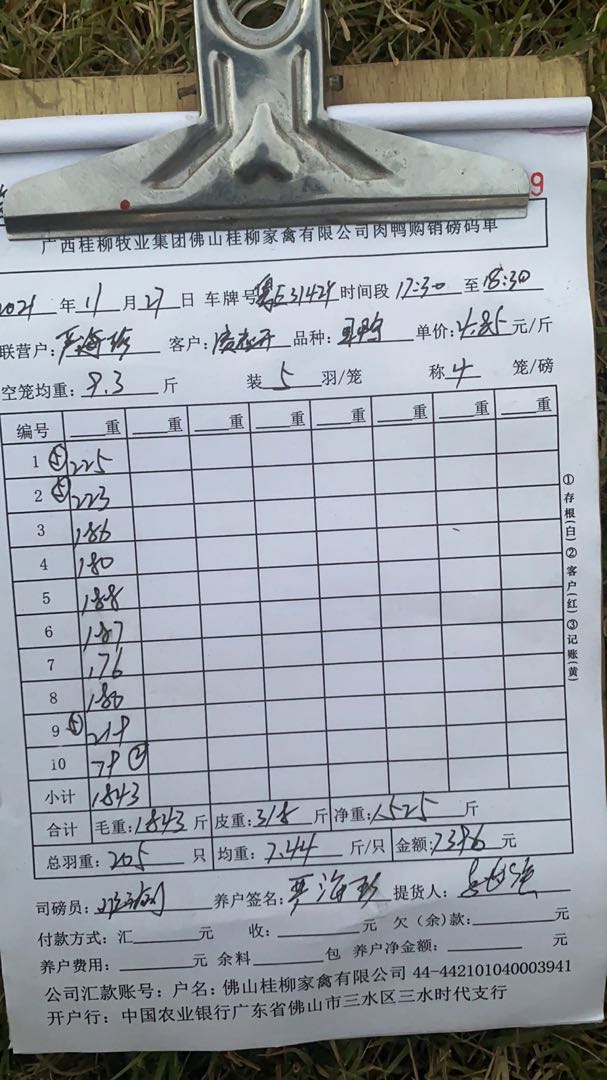 9
广西桂柳牧业集团佛山桂柳家禽有限公司肉鸭购销磅码单
2021 年 11 月 27 日 车牌号 粤E31424 时间段 17:30 至 18:30
联营户: 严海珍 客户: 品种: 单价: 4.85 元/斤
空笼均重: 9.3 斤 装 5 羽/笼 称 4 笼/磅
编号 重 重 重 重 重 重 重 重
1 ⑤ 225
2 ⑤ 223
3 186
4 180
5 188
6 187
7 176
8 180
9 ⑤ 219
10 79 ②
小计 1843
合计 毛重: 1843 斤 皮重: 318 斤 净重: 1525 斤
总羽重: 205 只 均重: 7.44 斤/只 金额: 7396 元
司磅员: 养户签名: 严海珍 提货人:
付款方式: 汇 元 收: 元 欠(余)款: 元
养户费用: 元 余料 包 养户净金额: 元
公司汇款账号: 户名: 佛山桂柳家禽有限公司 44-442101040003941
开户行: 中国农业银行广东省佛山市三水区三水时代支行
①存根(白)②客户(红)③记账(黄)